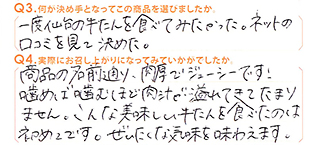 Q3.何が決め手となってこの商品を選びましたか。
一度仙台の牛たんを食べてみたかった。ネットの
口コミを見て決めた。
Q4.実際にお召し上がりになってみていかがでしたか。
商品の名前通り、肉厚でジューシーです!
噛めば噛むほど肉汁が溢れてきてたまり
ません。こんな美味しい牛たんを食べたのは
初めてです。ぜいたくな気味を味わえます。